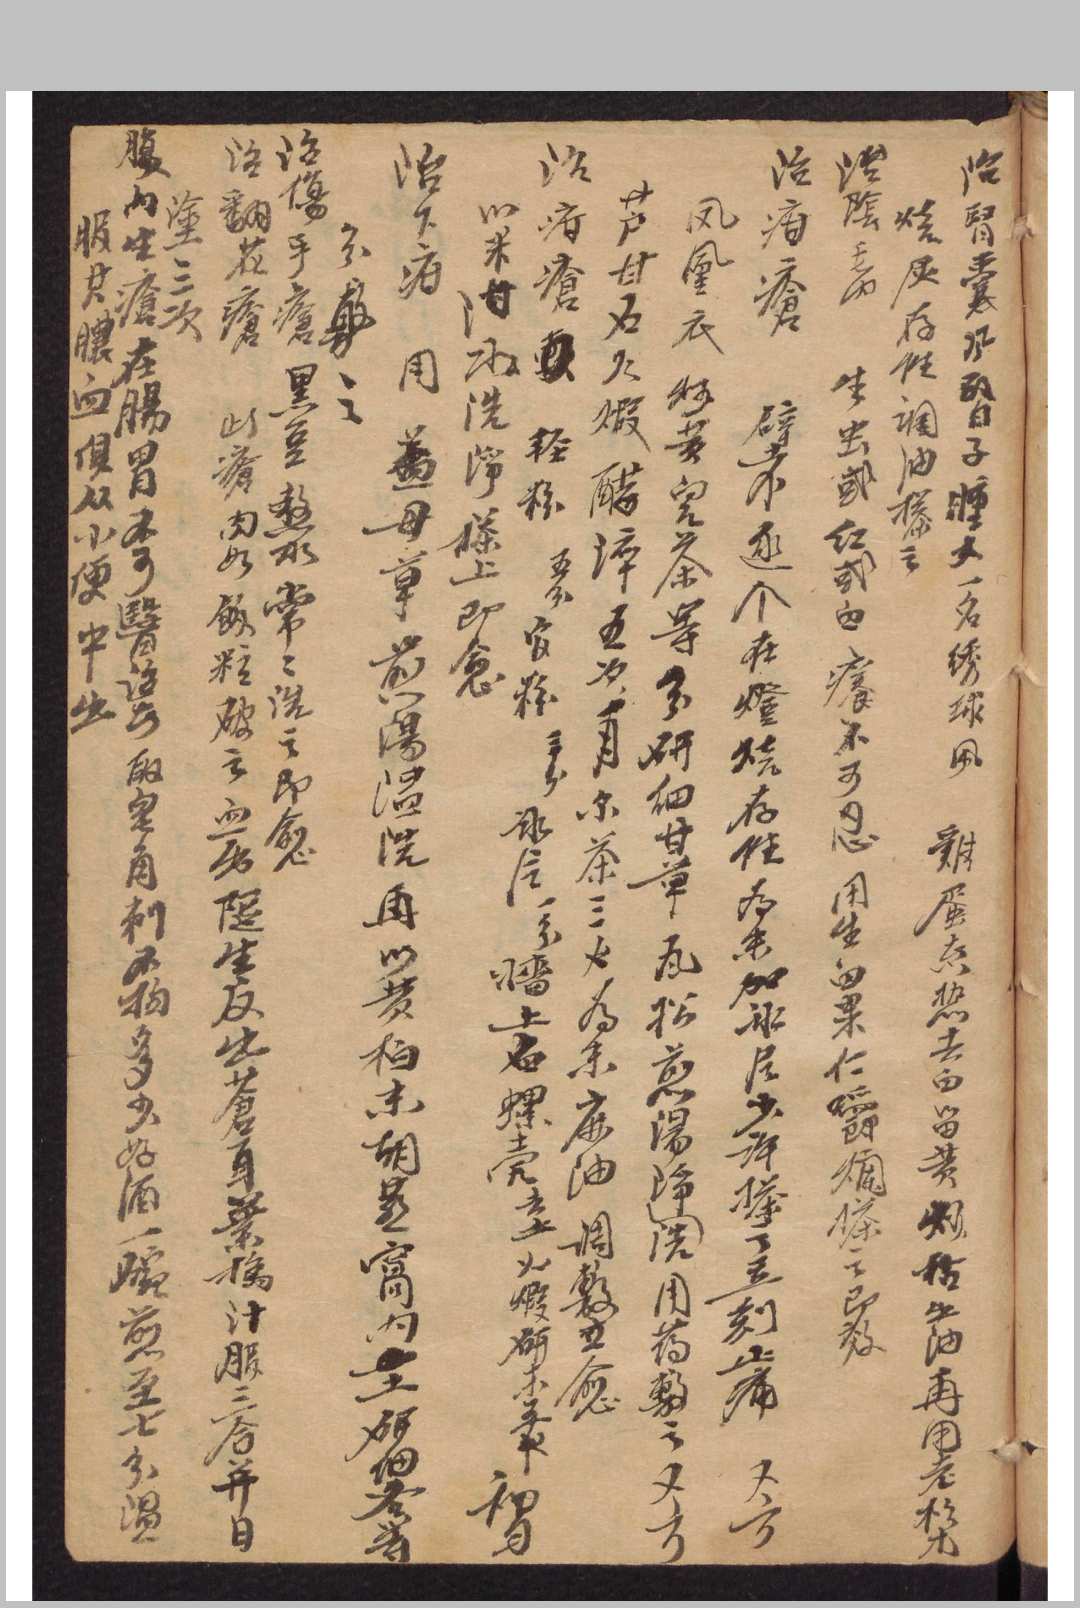 治腎囊風腎子腫大一名绣球風 雞蛋煮熟去白留黄炒枯出油再用老杉木
燒灰存性調油搽之
治陰毛內 生虫或红或白 癢不可忍 用生白果仁嚼爛搽之即效
治疳瘡 壁本逐个在燈燒存性為末加冰片少許搽了立刻止痛 又方
凤凰衣 炒黄 兒茶等分研细甘草瓦松煎湯净洗用药敷之又方
芦甘石火煅醋淬五次 青 尔茶三 為末麻油調敷立愈
治疳瘡 轻粉 五分官粉 三分 冰片 一分墙上白螺壳 火煅研末 初
以米泔水洗净搽上即愈
治下疳 用 益母草煎湯温洗再以黄柏末胡 窩内土研细
分敷之
治傷手瘡黑豆熬水常常洗之即愈
治翻花瘡 此瘡肉如飯粒破之血出随生反出蒼耳葉搗汁服三合并日
塗三次
腹內生瘡在腸胃不可醫治 取皂角刺不拘多少好酒一碗煎至七分温
服其膿血俱从小便中出